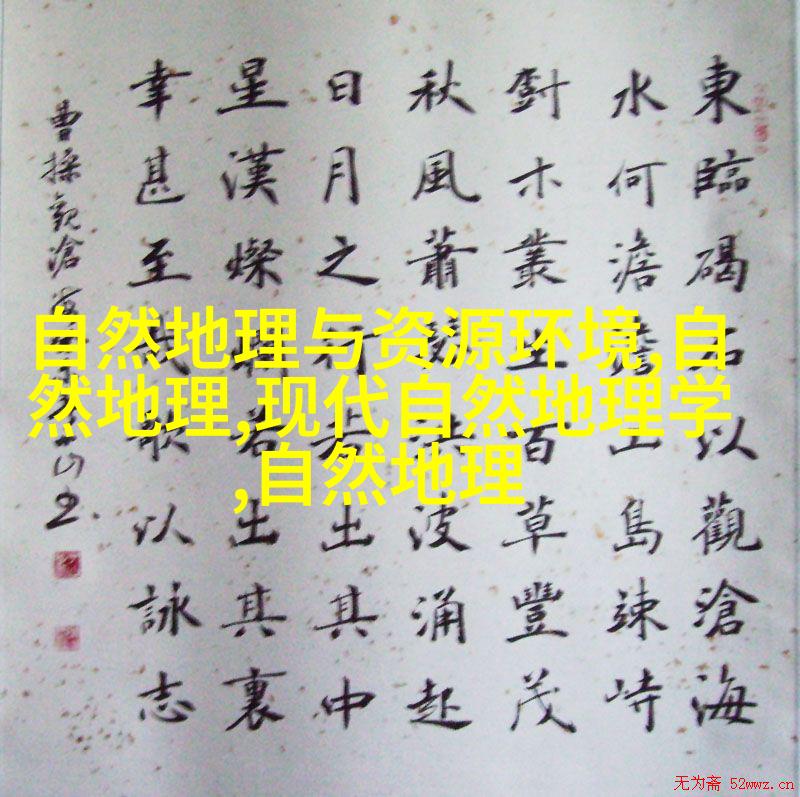 東臨碣石以觀滄海
水何澹澹山島竦峙
木叢生百草豐茂
秋風蕭瑟洪波涌起
日月之行若出其中
星漢燦爛若出其裏
幸甚至哉歌以詠志
曹操觀滄海
自然地理与资源环境,自
然地理,现代自然地理学
,自然地理
无为斋 52wwz.cn